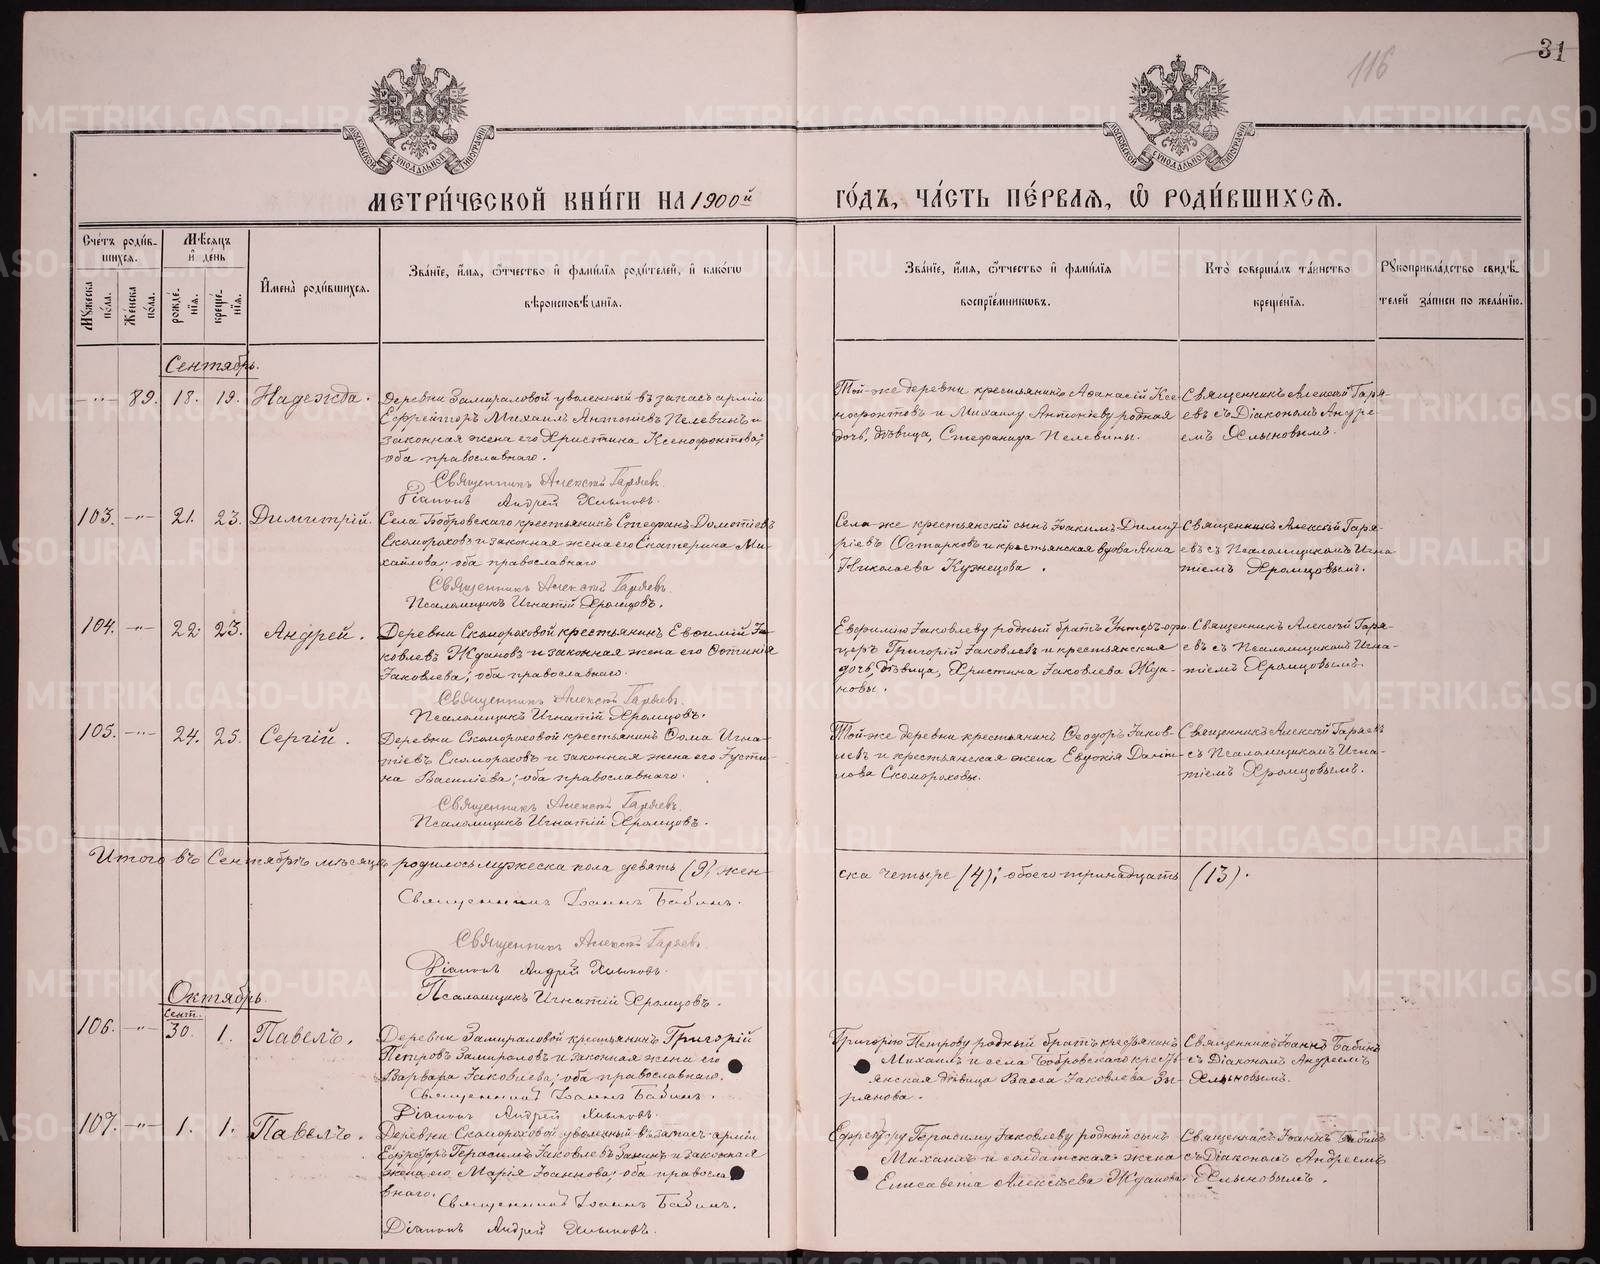 31
116
МОСКОВСКОЙ СѴНОДАЛЬНОЙ ТИПОГРАФІИ
МОСКОВСКОЙ СѴНОДАЛЬНОЙ ТИПОГРАФІИ
МЕТРИ́ЧЕСКОЙ КНИ́ГИ НА 1900й ГО́ДЪ, ЧА́СТЬ ПЕ́РВАЯ, Ѽ РОДИ́ВШИХСЯ.
Сче́тъ роди́в-
шихся.
Мꙋжеска по́ла.
Же́нска по́ла.
Мѣ́сяцъ и҆ де́нь
рожде́-
нїя.
креще́-
нїя.
И҆мена̀ роди́вшихся.
Зва́нїе, и҆́мя, ѻ҆́тчество и҆ фами́лїя роди́телей, и҆ како́гѡ
вѣроисповѣ́данїя.
Зва́нїе, и҆́мя, ѻ҆́тчество и҆ фами́лїя
воспрїе́мникѡвъ.
Кто̀ соверша́лъ та́инство
креще́нїя.
Рꙋкоприкла́дство свидѣ́-
телей за́писи по жела́нїю.
Сентябрь.
—"— 89. 18. 19. Надежда.
Деревни Замираловой уволенный въ запасъ арміи
Ефрейторъ Михаилъ Антоніевъ Пелевинъ и
законная жена его Христина Ксенофонтова;
оба православнаго.
Священникъ Алексѣй Гаряевъ.
Діаконъ Андрей Хлыновъ.
Той-же деревни крестьянинъ Аѳанасій Ксе-
нофонтовъ и Михаилу Антоніеву родная
дочь, дѣвица, Стефанида Пелевины.
Священникъ Алексѣй Гаря-
евъ съ Діакономъ Андре-
емъ Хлыновымъ.
103. —"— 21. 23. Димитрій.
Села Бобровскаго крестьянинъ Стефанъ Дометіевъ
Скомороховъ и законная жена его Екатерина Ми-
хайлова; оба православнаго
Священникъ Алексѣй Гаряевъ.
Псаломщикъ Игнатій Хромцовъ.
Села-же крестьянскій сынъ Іоакимъ Димит-
ріевъ Остарковъ и крестьянская вдова Анна
Николаева Кузнецова.
Священникъ Алексѣй Гаря-
евъ съ Псаломщикомъ Игна-
тіемъ Хромцовымъ.
104. —"— 22. 23. Андрей.
Деревни Скомороховой крестьянинъ Евѳимій Іа-
ковлевъ Ждановъ и законная жена его Фотинія
Іаковлева; оба православнаго.
Священникъ Алексѣй Гаряевъ.
Псаломщикъ Игнатій Хромцовъ.
Евфимію Іаковлеву родный братъ Унтеръ-офи-
церъ Григорій Іаковлевъ и крестьянская
дочь, дѣвица, Христина Іаковлева Жда-
новы.
Священникъ Алексѣй Гаря-
евъ съ Псаломщикомъ Игна-
тіемъ Хромцовымъ.
105. —"— 24. 25. Сергій.
Деревни Скомороховой крестьянинъ Ѳома Игна-
тіевъ Скомороховъ и законная жена его Іусти-
на Василіева; оба православнаго.
Священникъ Алексѣй Гаряевъ.
Псаломщикъ Игнатій Хромцовъ.
Той-же деревни крестьянинъ Ѳеодоръ Іаков-
левъ и крестьянская жена Евдокія Даніи-
лова Скомороховы.
Священникъ Алексѣй Гаряевъ
съ Псаломщикомъ Игна-
тіемъ Хромцовымъ.
Итого въ Сентябрѣ мѣсяцѣ родилось мужеска пола девять (9) жен-
ска четыре (4); обоего тринадцать (13).
Священникъ Іоаннъ Бабинъ.
Священникъ Алексѣй Гаряевъ.
Діаконъ Андрей Хлыновъ.
Псаломщикъ Игнатій Хромцовъ.
Октябрь.
Сент.
106. —"— 30. 1. Павелъ.
Деревни Замираловой крестьянинъ Григорій
Петровъ Замираловъ и законная жена его
Варвара Іаковлева; оба православнаго.
Священникъ Іоаннъ Бабинъ.
Діаконъ Андрей Хлыновъ.
Григорію Петрову родный братъ крестьянинъ
Михаилъ и села Бобровскаго кресть-
янская дѣвица Васса Іаковлева Зы-
рянова.
Священникъ Іоаннъ Бабинъ
съ Діакономъ Андреемъ
Хлыновымъ.
107. —"— 1. 1. Павелъ.
Деревни Скомороховой уволенный въ запасъ арміи
Ефрейторъ Герасимъ Іаковлевъ и законная
жена его Марія Іоаннова; оба правосла-
внаго.
Священникъ Іоаннъ Бабинъ.
Діаконъ Андрей Хлыновъ.
Ефрейтору Герасиму Іаковлеву родный сынъ
Михаилъ и солдатская жена
Елисавета Алексѣева Жданова.
Священникъ Іоаннъ Бабинъ
съ Діакономъ Андреемъ
Хлыновымъ.
METRIKI.GASO-URAL.RU